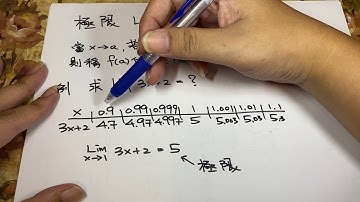 極限 L
當 x→a, 若
則稱 f(a)
例 求 3x+2 = ?
x 0.9 0.99 0.999 1 1.001 1.01 1.1
3x+2 4.7 4.97 4.997 5 5.003 5.03 5.3
Lim 3x+2 = 5
x→1
極限